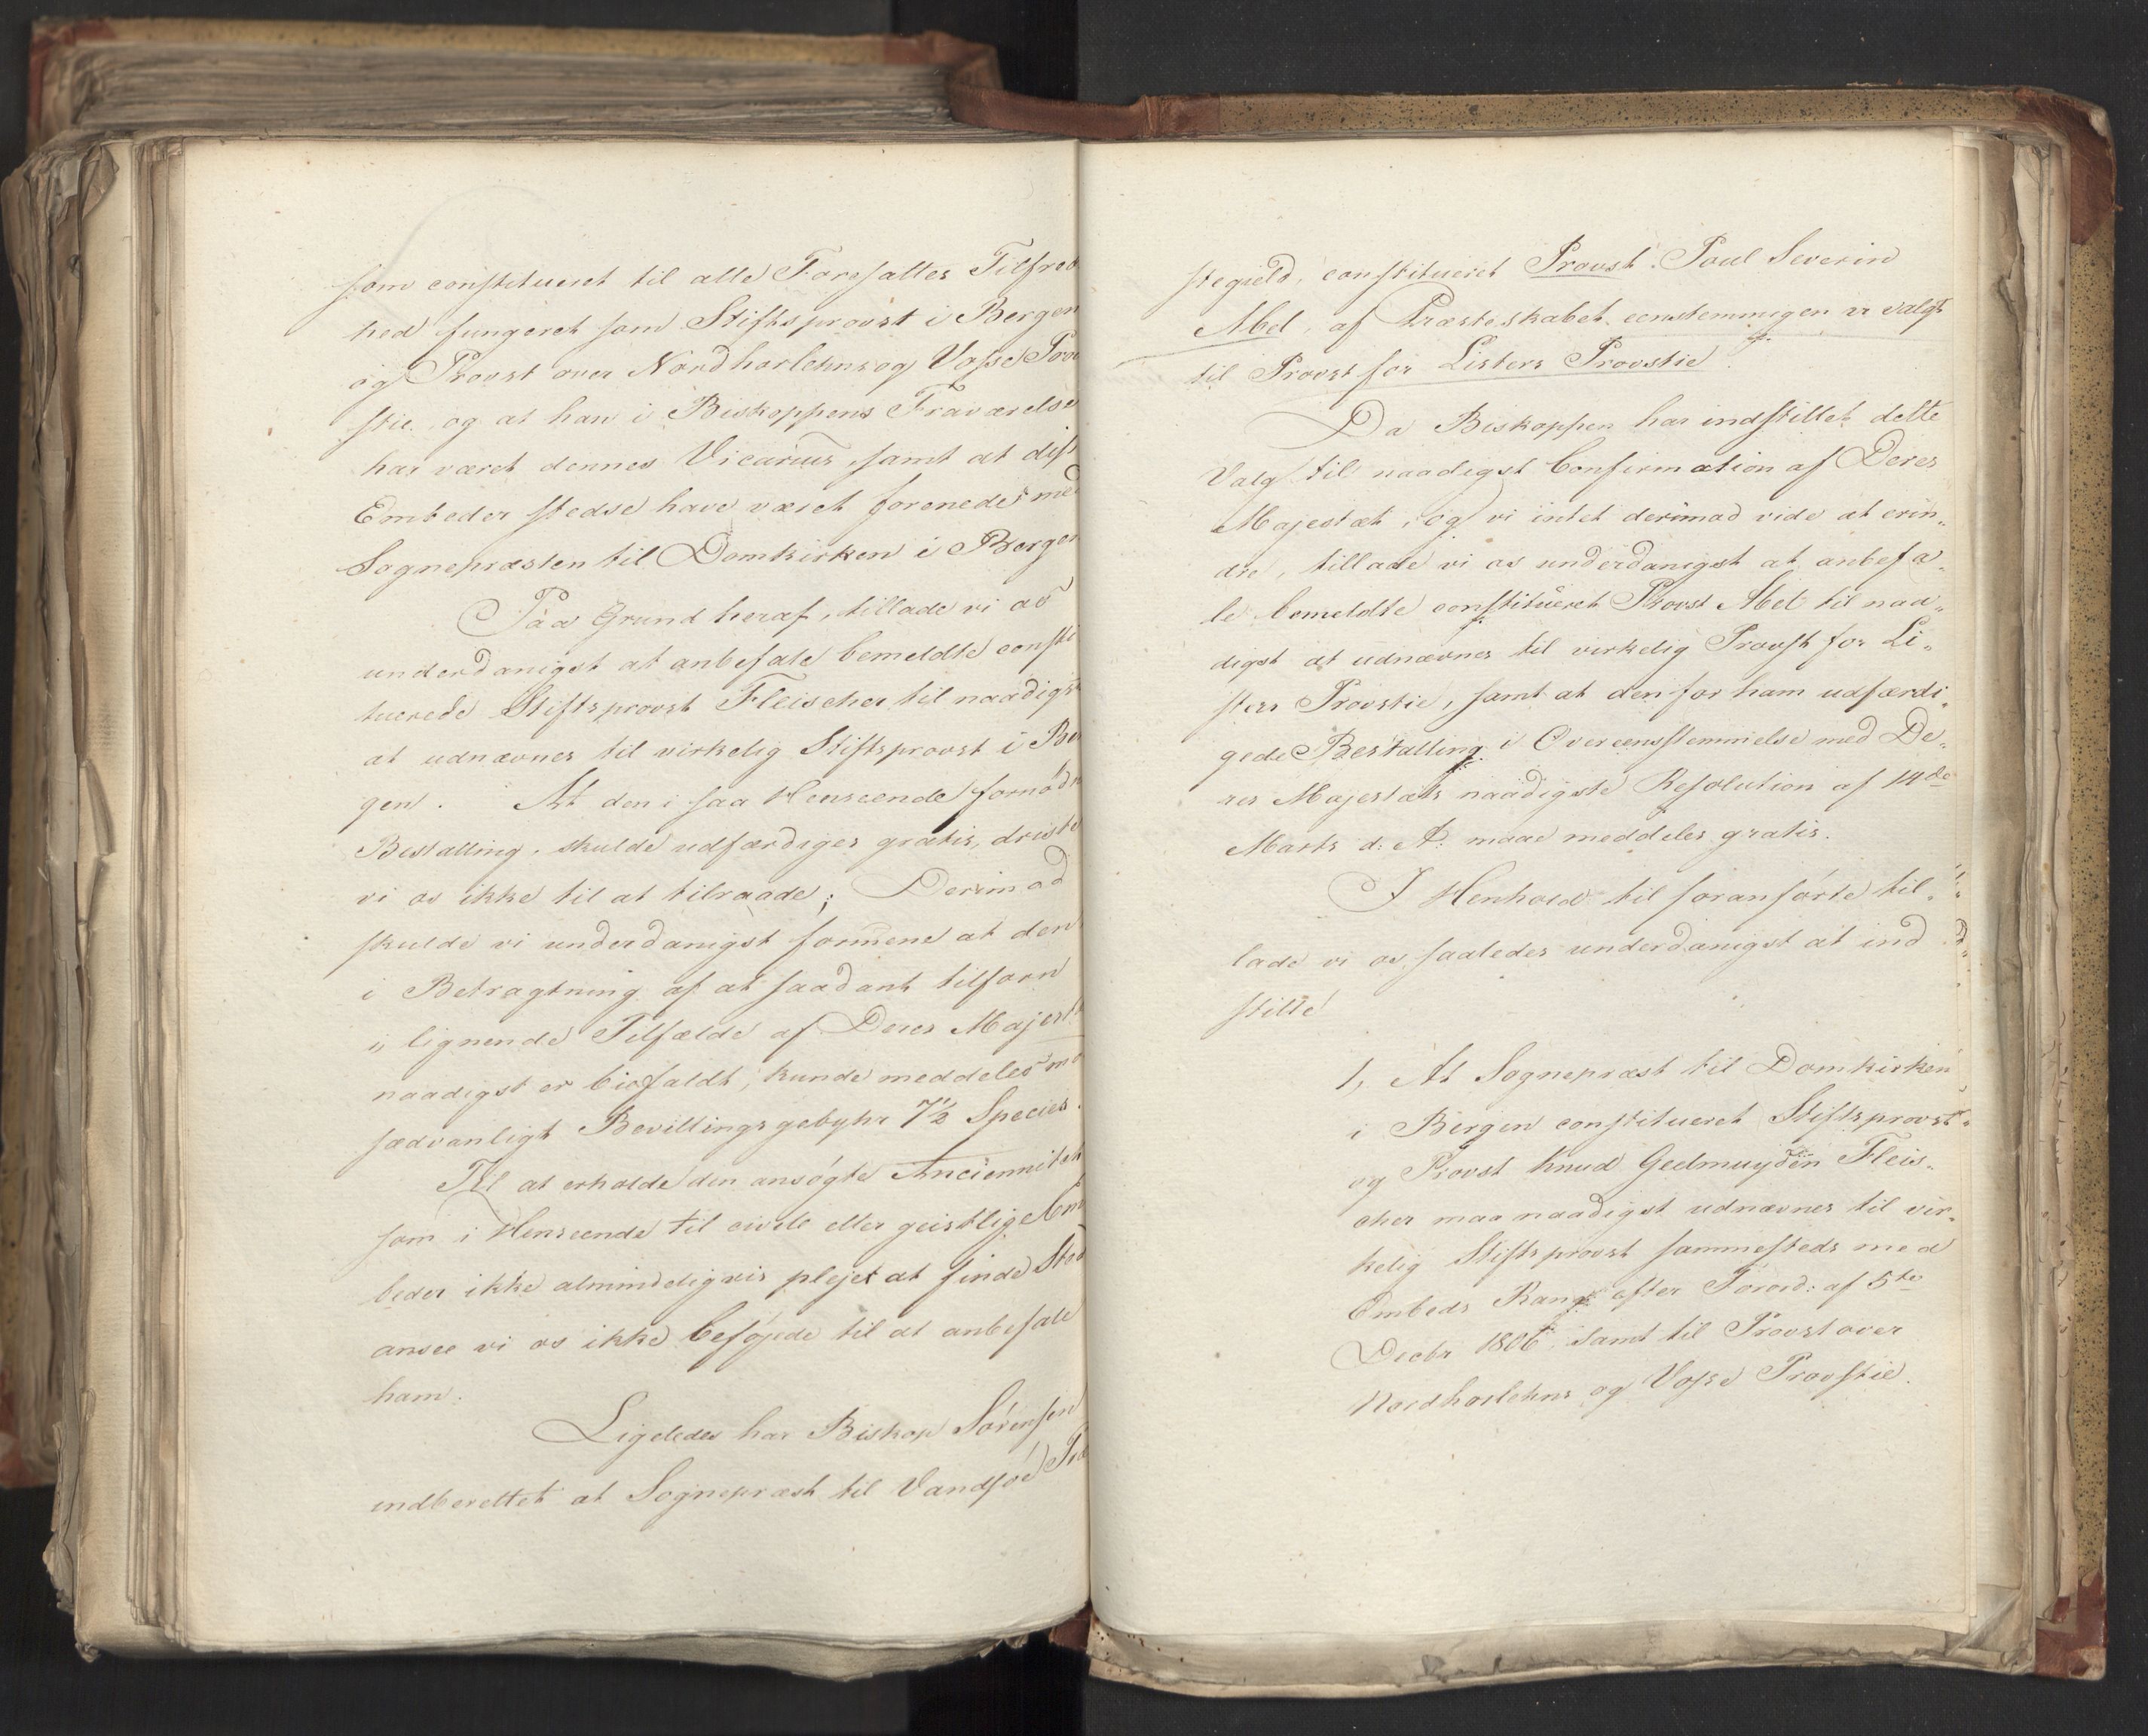 som constitueret til alle Foresattes Tilfred
hed fungeret som Stiftsprovst i Bergen
og Provst over Nordhorlehns og Vosse Prov
stie, og at han i Biskoppens Fraværelse
har været dennes Vicarius, samt at diss
Embeder stedse have været forenede med
Sognepræsten til Domkirken i Bergen
Paa Grund heraf, tillade vi os
underdanigst at anbefale bemeldte consti
tuerede Stiftsprovst Fleischer til naadigst
at udnævnes til virkelig Stiftsprovst i Ber
gen. At den i saa Henseende fornødn
Bestalling, skulde udfærdiges gratis, driste
vi os ikke til at tilraade; Derimod
skulde vi underdanigst formene at den
i Betragtning af at saadant tilforn
i lignende Tilfælde af Deres Majest
naadigst er bifaldt, kunde meddeles mo
sædvanligt Bevillingsgebyhr 7½ Species.
Til at erholde den ansøgte Anciennitet
som i Henseende til civile eller geistlige Em
beder ikke almindeligviis plejet at finde Sted
ansee vi os ikke beføjede til at anbefale
ham.
Ligeledes har Biskop Sørensen
indberettet at Sognepræst til Vandsøe Præ
stegield, constitueret Provst Poul Severin
Abel, af Præsteskabet eenstemmigen er valgt
til Provst for Listers Provstie.
Da Biskoppen har indstillet dette
Valg til naadigst Confirmation af Deres
Majestæt, og vi intet derimod vide at erin„
dre, tillade vi os underdanigst at anbefa„
le bemeldte constitueret Provst Abel til naa„
digst at udnævnes til virkelig Provst for Li„
sters Provstie, samt at den for ham udfærdi„
gede Bestalling i Overeensstemmelse med De„
res Majestæts naadigste Resolution af 14de
Marts d: A: maae meddeles gratis.
I Henhold til foranførte til„
lade vi os saaledes underdanigst at ind
stille
1, At Sognepræst til Domkirken
i Bergen constitueret Stiftsprovst
og Provst Knud Geelmuyden Fleis„
cher maa naadigst udnævnes til vir„
kelig Stiftsprovst sammesteds med
Embeds Rang efter Forord: af 5te
Decbr 1806, samt til Provst over
Nordhorlehns og Vosse Provstie.